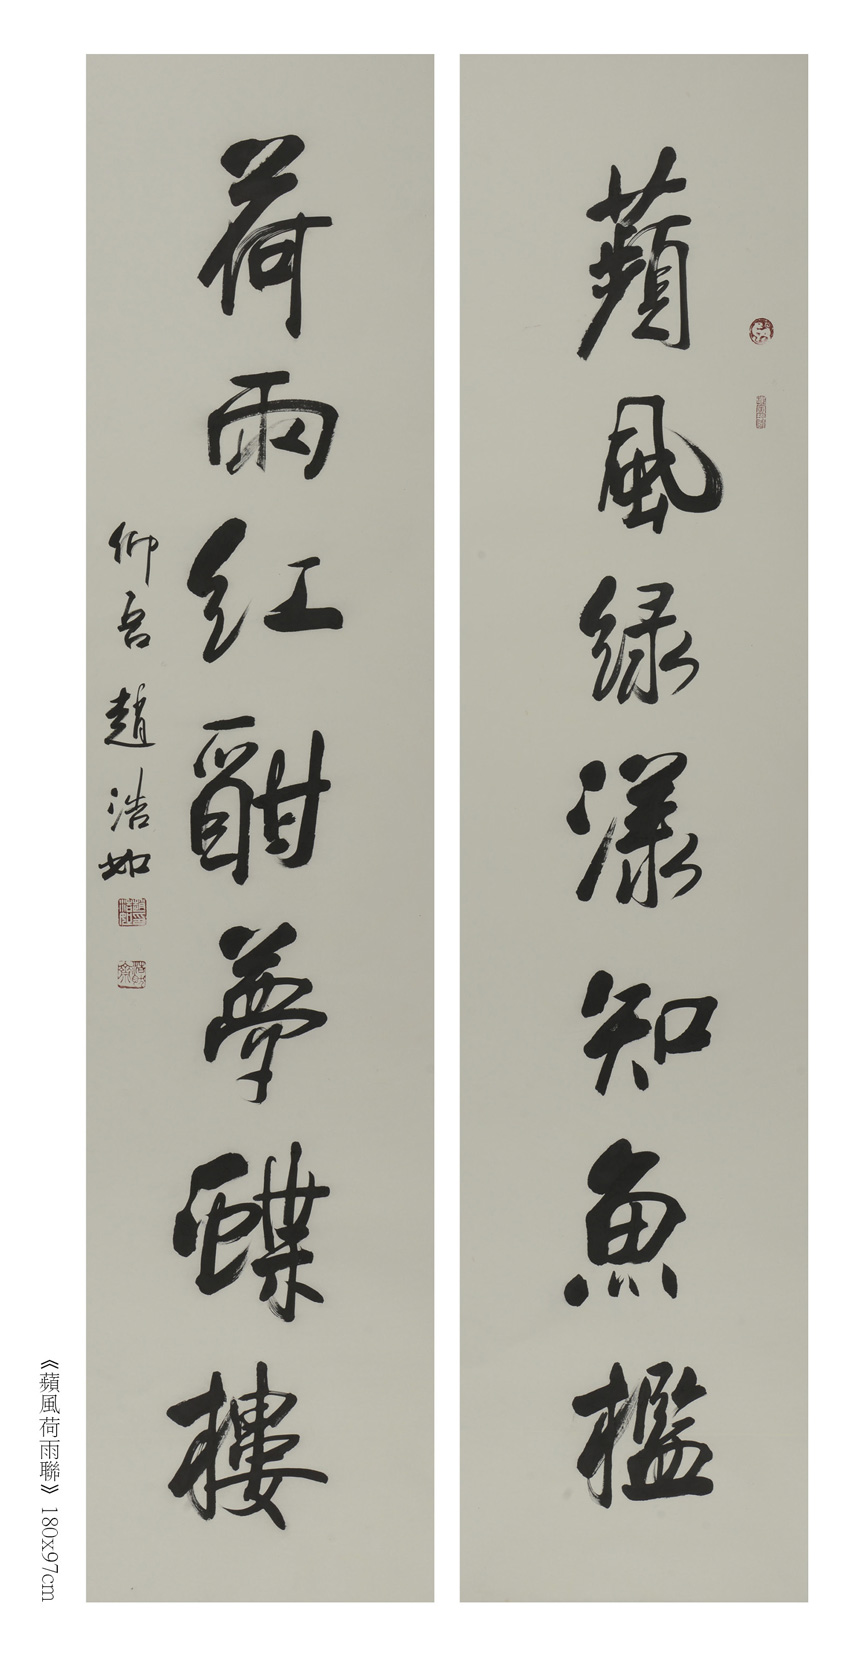 蘋風绿漾知魚檻
荷雨红酣夢蝶樓
仰吾趙浩如
《蘋風荷雨聯》180x97cm